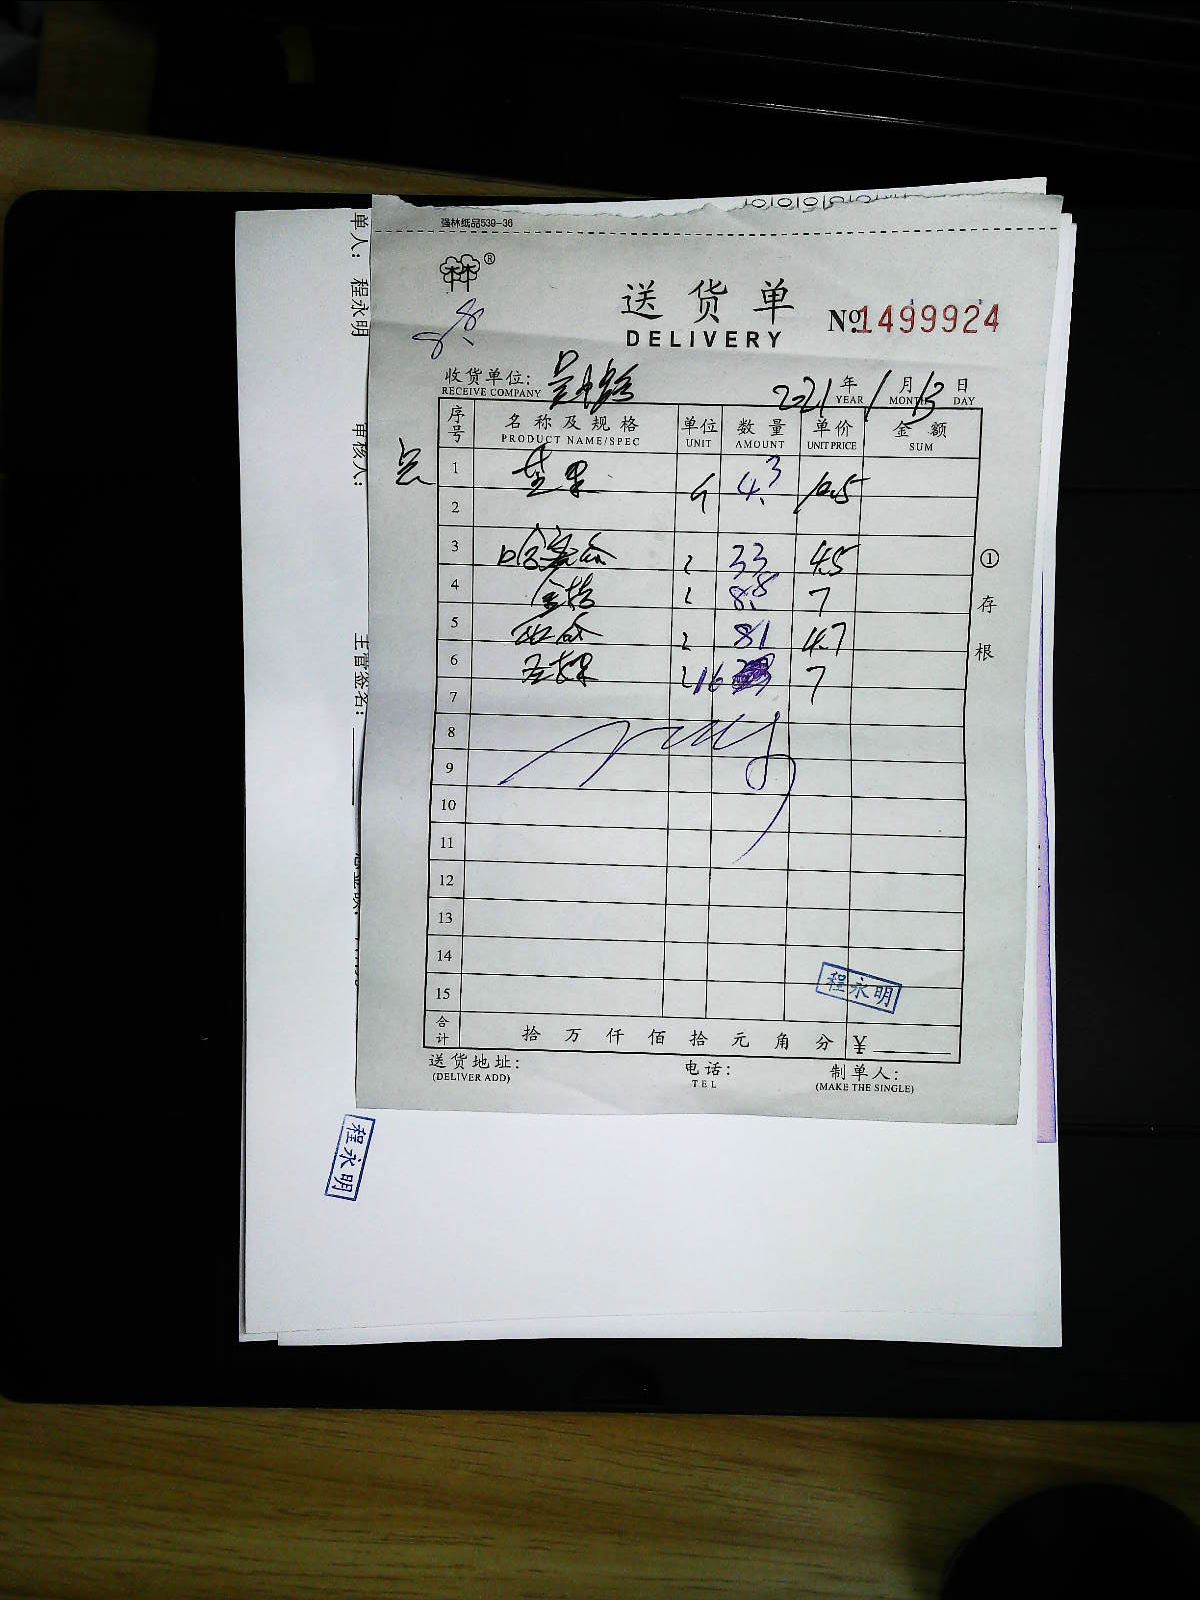 强林纸品539-36
林®
8.8
送货单
DELIVERY
No.1499924
收货单位:
RECEIVE COMPANY
2021年1月13日
YEAR MONTH DAY
序号 名称及规格 单位 数量 单价 金额
PRODUCT NAME/SPEC UNIT AMOUNT UNIT PRICE SUM
1 斤 4.3 10.5
2
3 哈密瓜 33 4.5
4 金桔 8.8 7
5 西瓜 81 4.7
6 16 7
7
8
9
10
11
12
13
14
15
程永明
合计 拾万仟佰拾元角分 ¥
送货地址: 电话: 制单人:
(DELIVER ADD) TEL (MAKE THE SINGLE)
①存根
单人: 程永明
审核人:
主管签名:
程永明